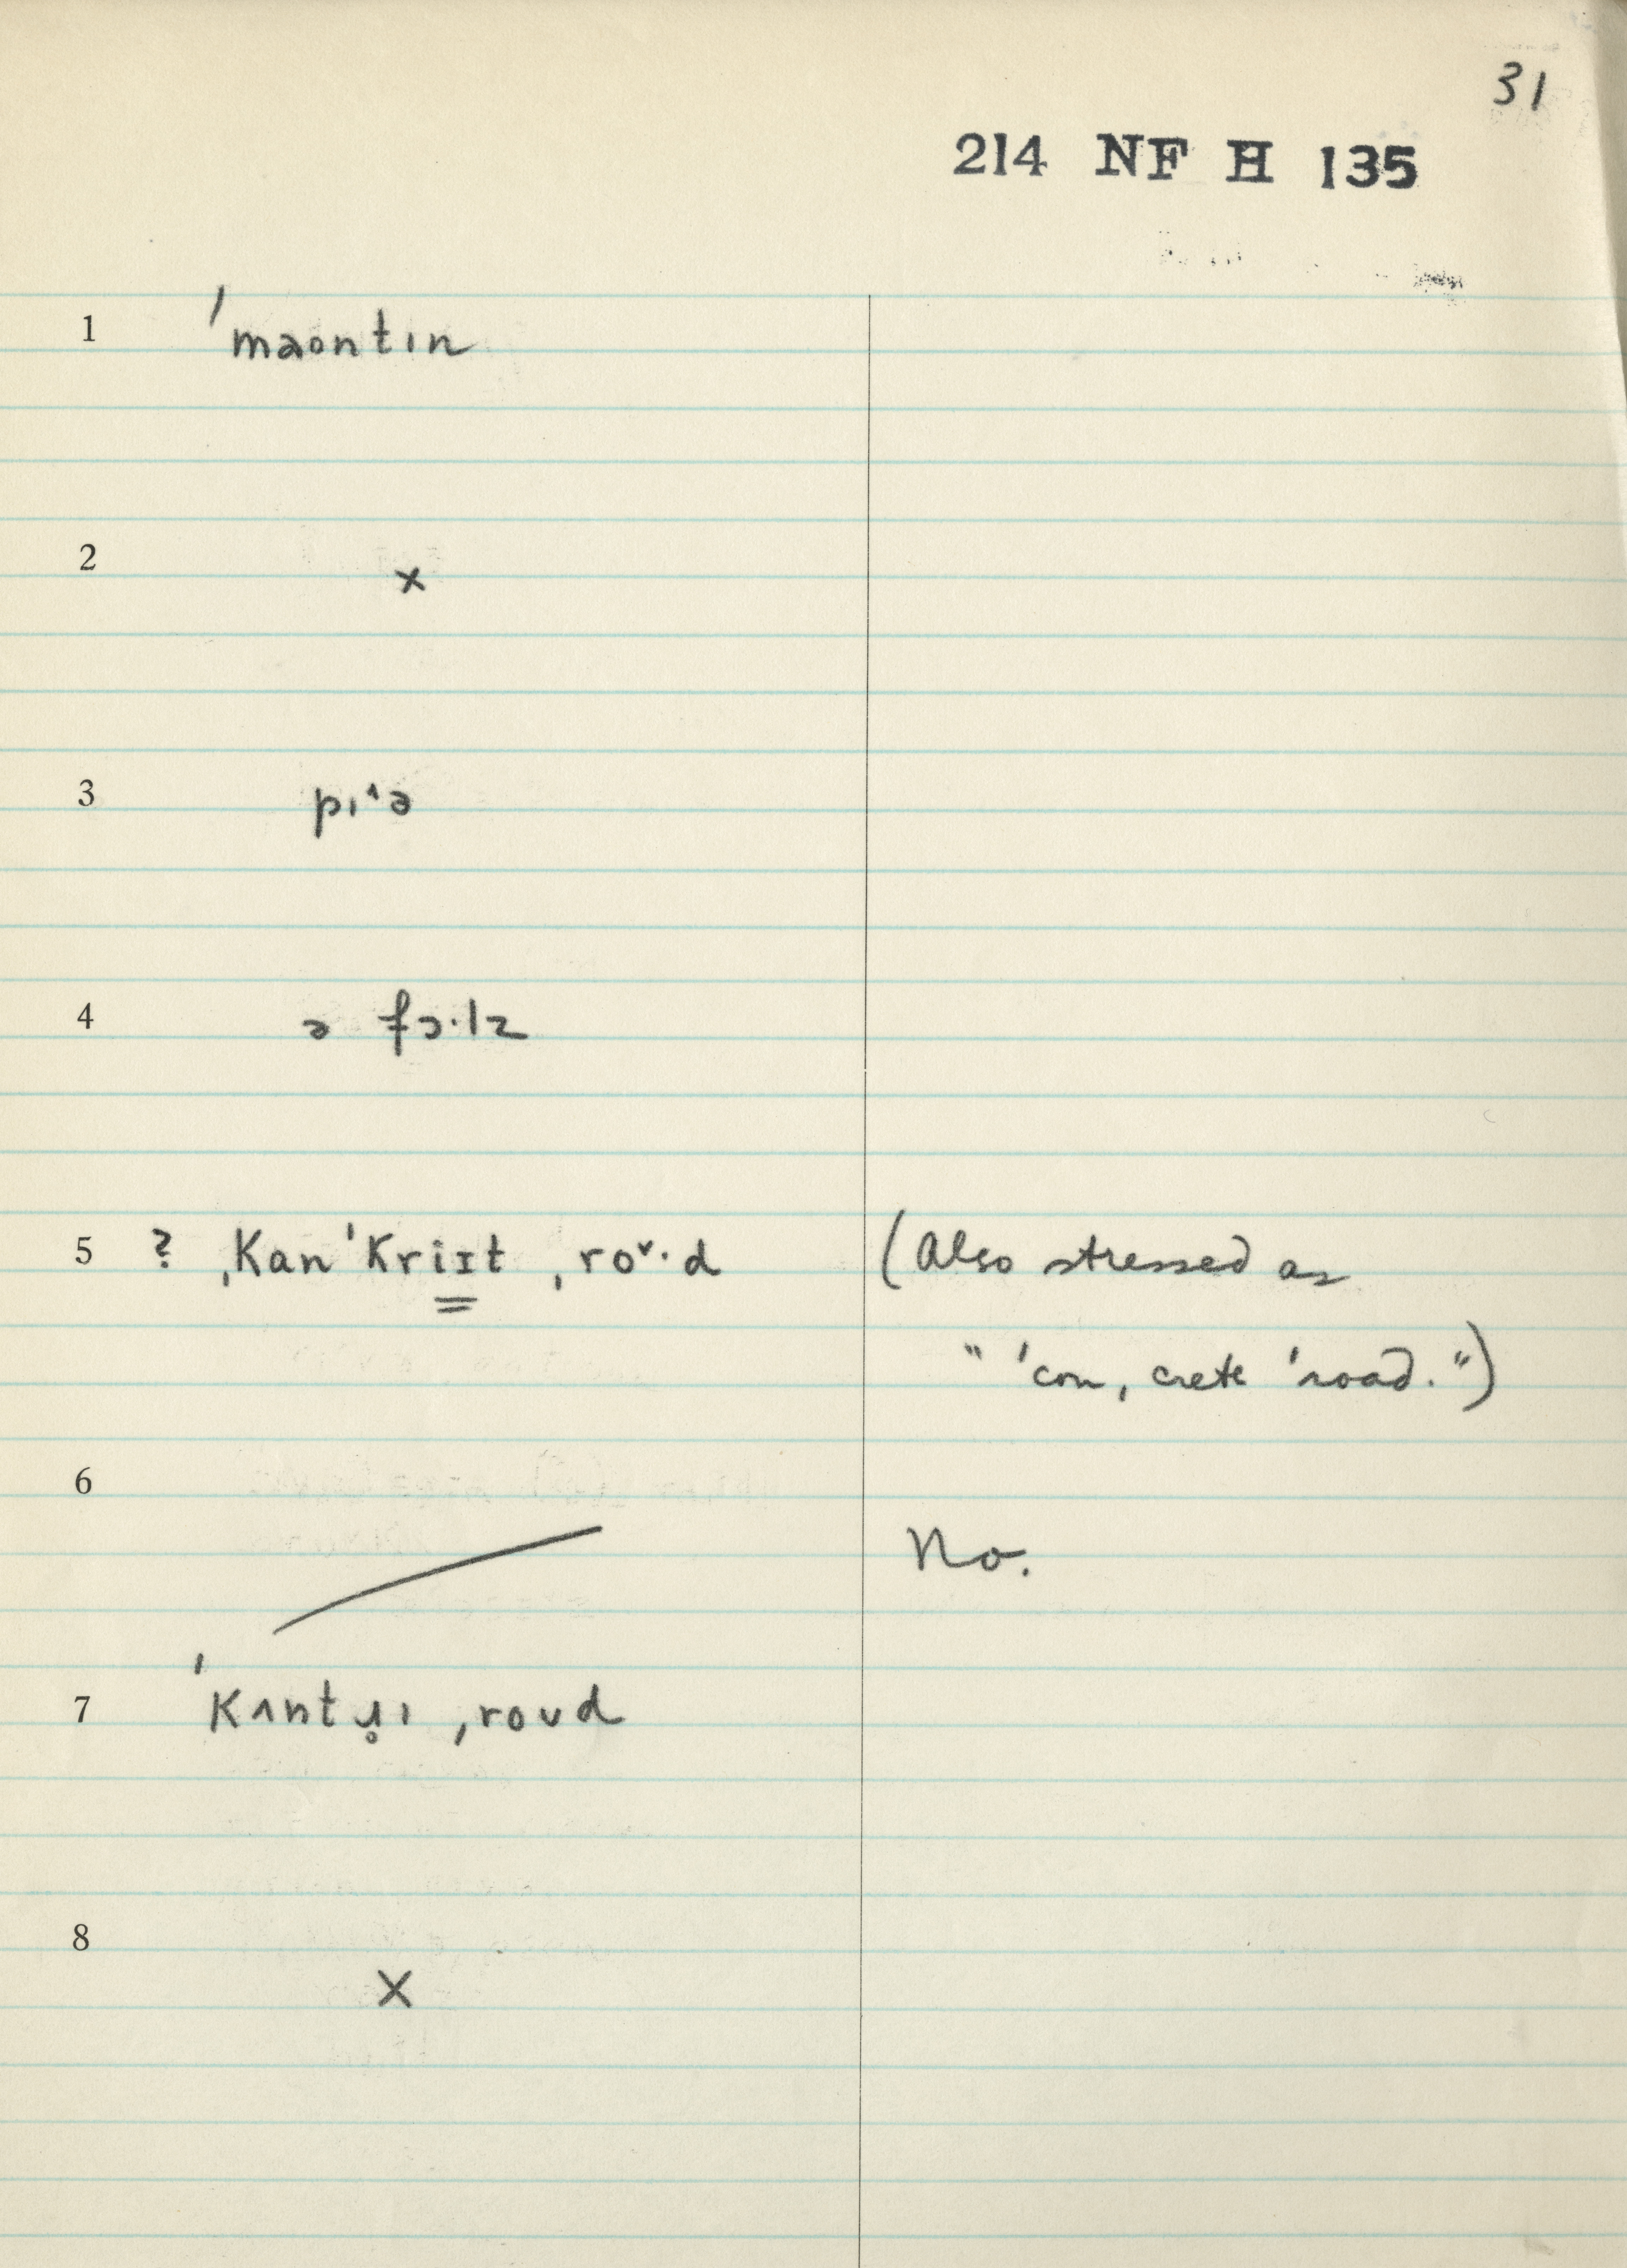 31
214 NF H 135
1 ˈmaontɪn
2 x
3 pɪ˄ə
4 ə fɔ·lz
5 ? ˌkanˈkriɪt ˌroᵛ·d (Also stressed as
" 'con, crete 'road.")
6
No.
7 ˈkʌntɹ̥ɪ ˌroʊd
8 X